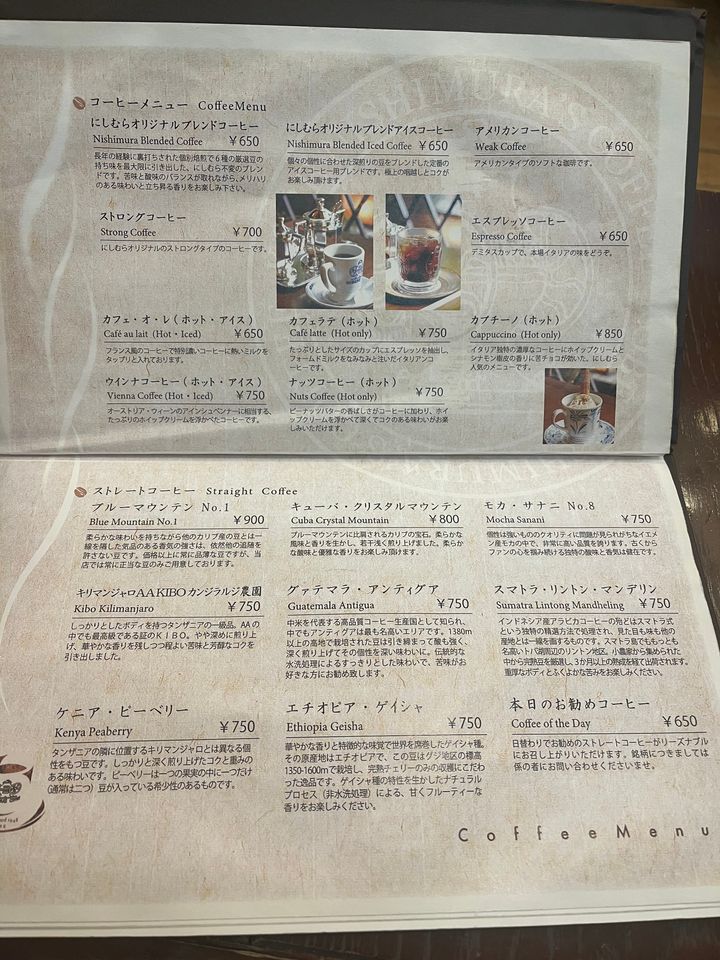 コーヒーメニュー CoffeeMenu
にしむらオリジナルブレンドコーヒー
Nishimura Blended Coffee ￥650
長年の経験に裏打ちされた個別焙煎で6種の厳選豆の
持ち味を最大限に引き出した、にしむら不変のブレン
ドです。苦味と酸味のバランスが取れながら、メリハリ
のある味わいと立ち昇る香りをお楽しみ下さい。
にしむらオリジナルブレンドアイスコーヒー
Nishimura Blended Iced Coffee ￥650
個々の個性に合わせた深煎りの豆をブレンドした定番の
アイスコーヒー用ブレンドです。極上の咽越しとコクが
お楽しみ頂けます。
アメリカンコーヒー
Weak Coffee ￥650
アメリカンタイプのソフトな珈琲です。
ストロングコーヒー
Strong Coffee ￥700
にしむらオリジナルのストロングタイプのコーヒーです。
エスプレッソコーヒー
Espresso Coffee ￥650
デミタスカップで、本場イタリアの味をどうぞ。
カフェ・オ・レ（ホット・アイス）
Café au lait (Hot・Iced) ￥650
フランス風のコーヒーで特別濃いコーヒーに熱いミルクを
タップリと入れております。
カフェラテ（ホット）
Café latte (Hot only) ￥750
たっぷりとしたサイズのカップにエスプレッソを抽出し、
フォームドミルクをなみなみと注いだイタリアンコ
ーヒーです。
カプチーノ（ホット）
Cappuccino (Hot only) ￥850
イタリア独特の濃厚なコーヒーにホイップクリームと
シナモン樹皮の香りに苦チョコが効いた。にしむら
人気のメニューです。
ウインナコーヒー（ホット・アイス）
Vienna Coffee (Hot・Iced) ￥750
オーストリア・ウィーンのアインシュペンナーに相当する、
たっぷりのホイップクリームを浮かべたコーヒーです。
ナッツコーヒー（ホット）
Nuts Coffee (Hot only) ￥750
ピーナッツバターの香ばしさがコーヒーに加わり、ホイ
ップクリームを浮かべて深くてコクのある味わいがお楽
しみいただけます。
ストレートコーヒー Straight Coffee
ブルーマウンテン No.1
Blue Mountain No.1 ￥900
柔らかな味わいを持ちながら他のカリブ産の豆とは一
線を隔した気品のある香気の強さは、依然他の追随を
許さない豆です。価格以上に常に品薄な豆ですが、当
店では常に正当な豆のみご用意しております。
キューバ・クリスタルマウンテン
Cuba Crystal Mountain ￥800
ブルーマウンテンに比肩されるカリブの宝石。柔らかな
風味と香りを生かし、若干浅く煎り上げました。柔らか
な酸味と優雅な香りをお楽しみ頂けます。
モカ・サナニ No.8
Mocha Sanani ￥750
個性は強いもののクオリティに問題が見られがちなイエ
メン産モカの中で、非常に高い品質を誇ります。古くから
ファンの心を掴み続ける独特の酸味と香気は健在です。
キリマンジャロAA KIBO カンジラルジ農園
Kibo Kilimanjaro ￥750
しっかりとしたボディを持つタンザニアの一級品。AAの
中でも最高級である証のKIBO。やや深めに煎り上
げ、華やかな香りを残しつつ程よい苦味と芳醇なコクを
引き出しました。
グァテマラ・アンティグア
Guatemala Antigua ￥750
中米を代表する高品質コーヒー生産国として知られ、
中でもアンティグアは最も名高いエリアです。1380m
以上の高地で栽培された豆は引き締まって酸も強く、
深く煎り上げてその個性を深い味わいに。伝統的な
水洗処理によるすっきりとした味わいで、苦味がお
好きな方にお勧め致します。
スマトラ・リントン・マンデリン
Sumatra Lintong Mandheling ￥750
インドネシア産アラビカコーヒーの殆どはスマトラ式
という独特の精選方法で処理され、見た目も味も他の
産地とは一線を画するものです。スマトラ島でももっとも
名高いトバ湖周辺のリントン地区。小農家から集められた
中から完熟豆を厳選し、3か月以上の熟成を経て出荷されます。
重厚なボディとふくよかな苦みをお楽しみください。
ケニア・ピーベリー
Kenya Peaberry ￥750
タンザニアの隣に位置するキリマンジャロとは異なる個
性をもつ豆です。しっかりと深く煎り上げたコクと重み
のある味わいです。ピーベリーは一つの果実の中に一つだけ
(通常は二つ）豆が入っている希少性のあるものです。
エチオピア・ゲイシャ
Ethiopia Geisha ￥750
華やかな香りと特徴的な味覚で世界を席巻したゲイシャ種。
その原産地はエチオピアで、この豆はグジ地区の標高
1350-1600mで栽培し、完熟チェリーのみの収穫にこだわ
った逸品です。ゲイシャ種の特性を生かしたナチュラル
プロセス（非水洗処理）による、甘くフルーティーな
香りをお楽しみください。
本日のお勧めコーヒー
Coffee of the Day ￥650
日替わりでお勧めのストレートコーヒーがリーズナブル
にお召し上がりいただけます。銘柄につきましては
係の者にお問い合わせくださいませ。
CoffeeMenu